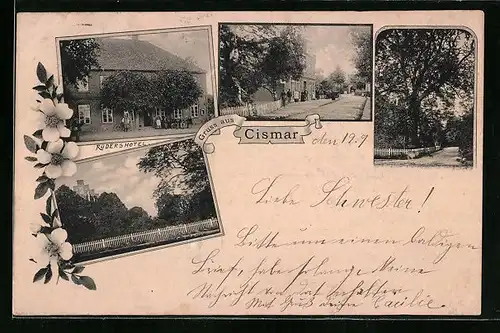 RÜDERSHOTEL
Gruss aus
Cismar
den 19.9
Liebe Schwester!
Bitte um einen baldigen
Brief, habe so lange keine
Nachricht von dir erhalten
Mit Gruß deine Cacilie.